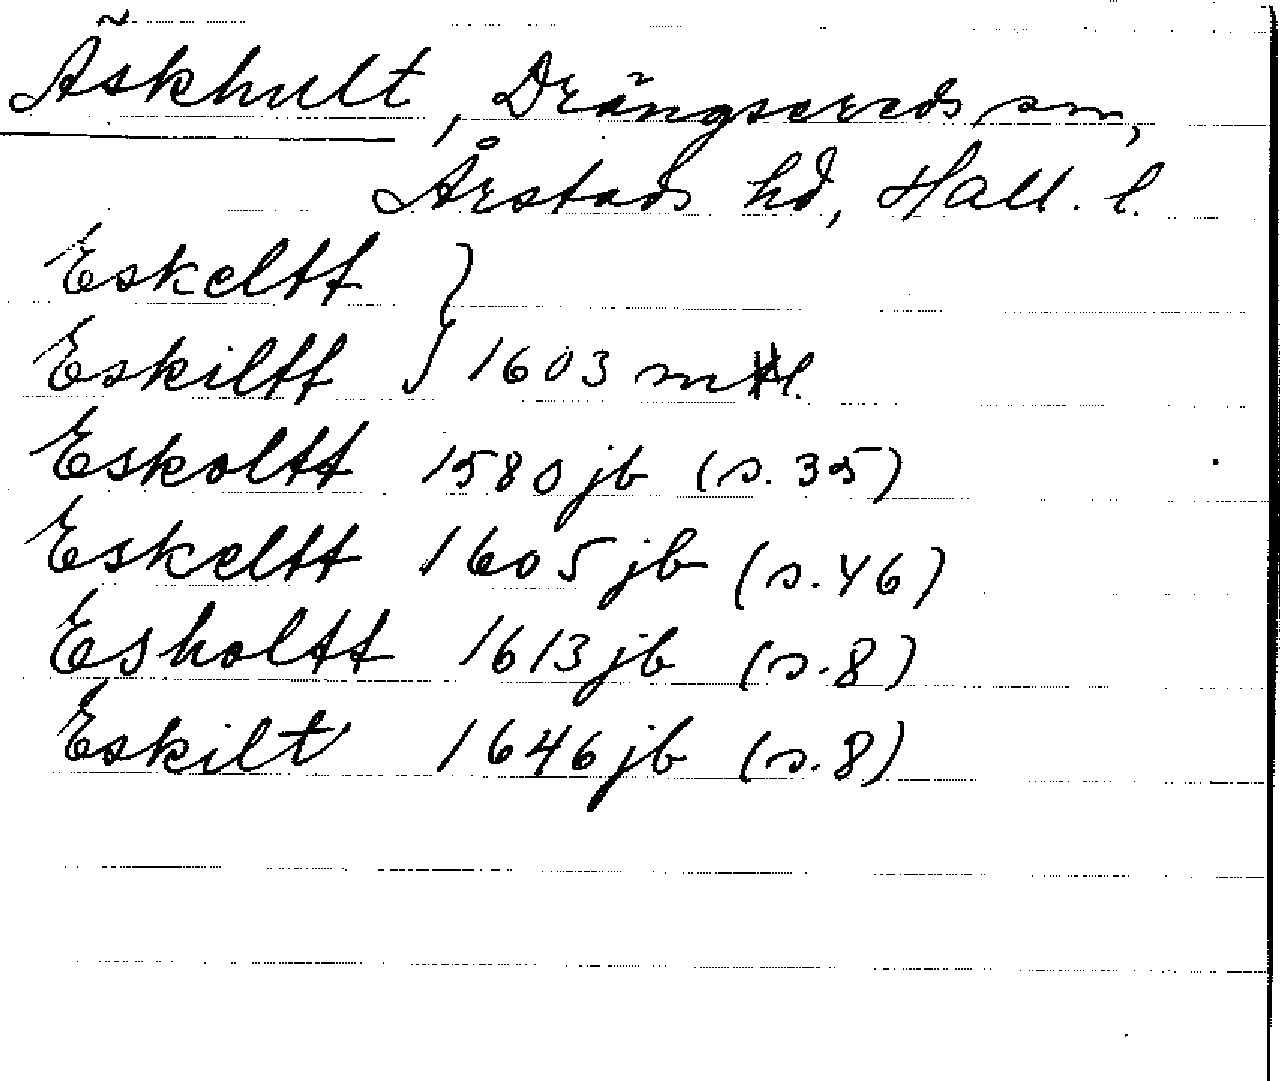 Äskhult, Drängsereds sn,
Årstads hd, Hall. l.
Eskeltt }
Eskiltt } 1603 mtl.
Eskoltt 1580 jb (s. 35)
Eskeltt 1605 jb (s. 46)
Esholtt 1613 jb (s. 8)
Eskilt 1646 jb (s. 8)